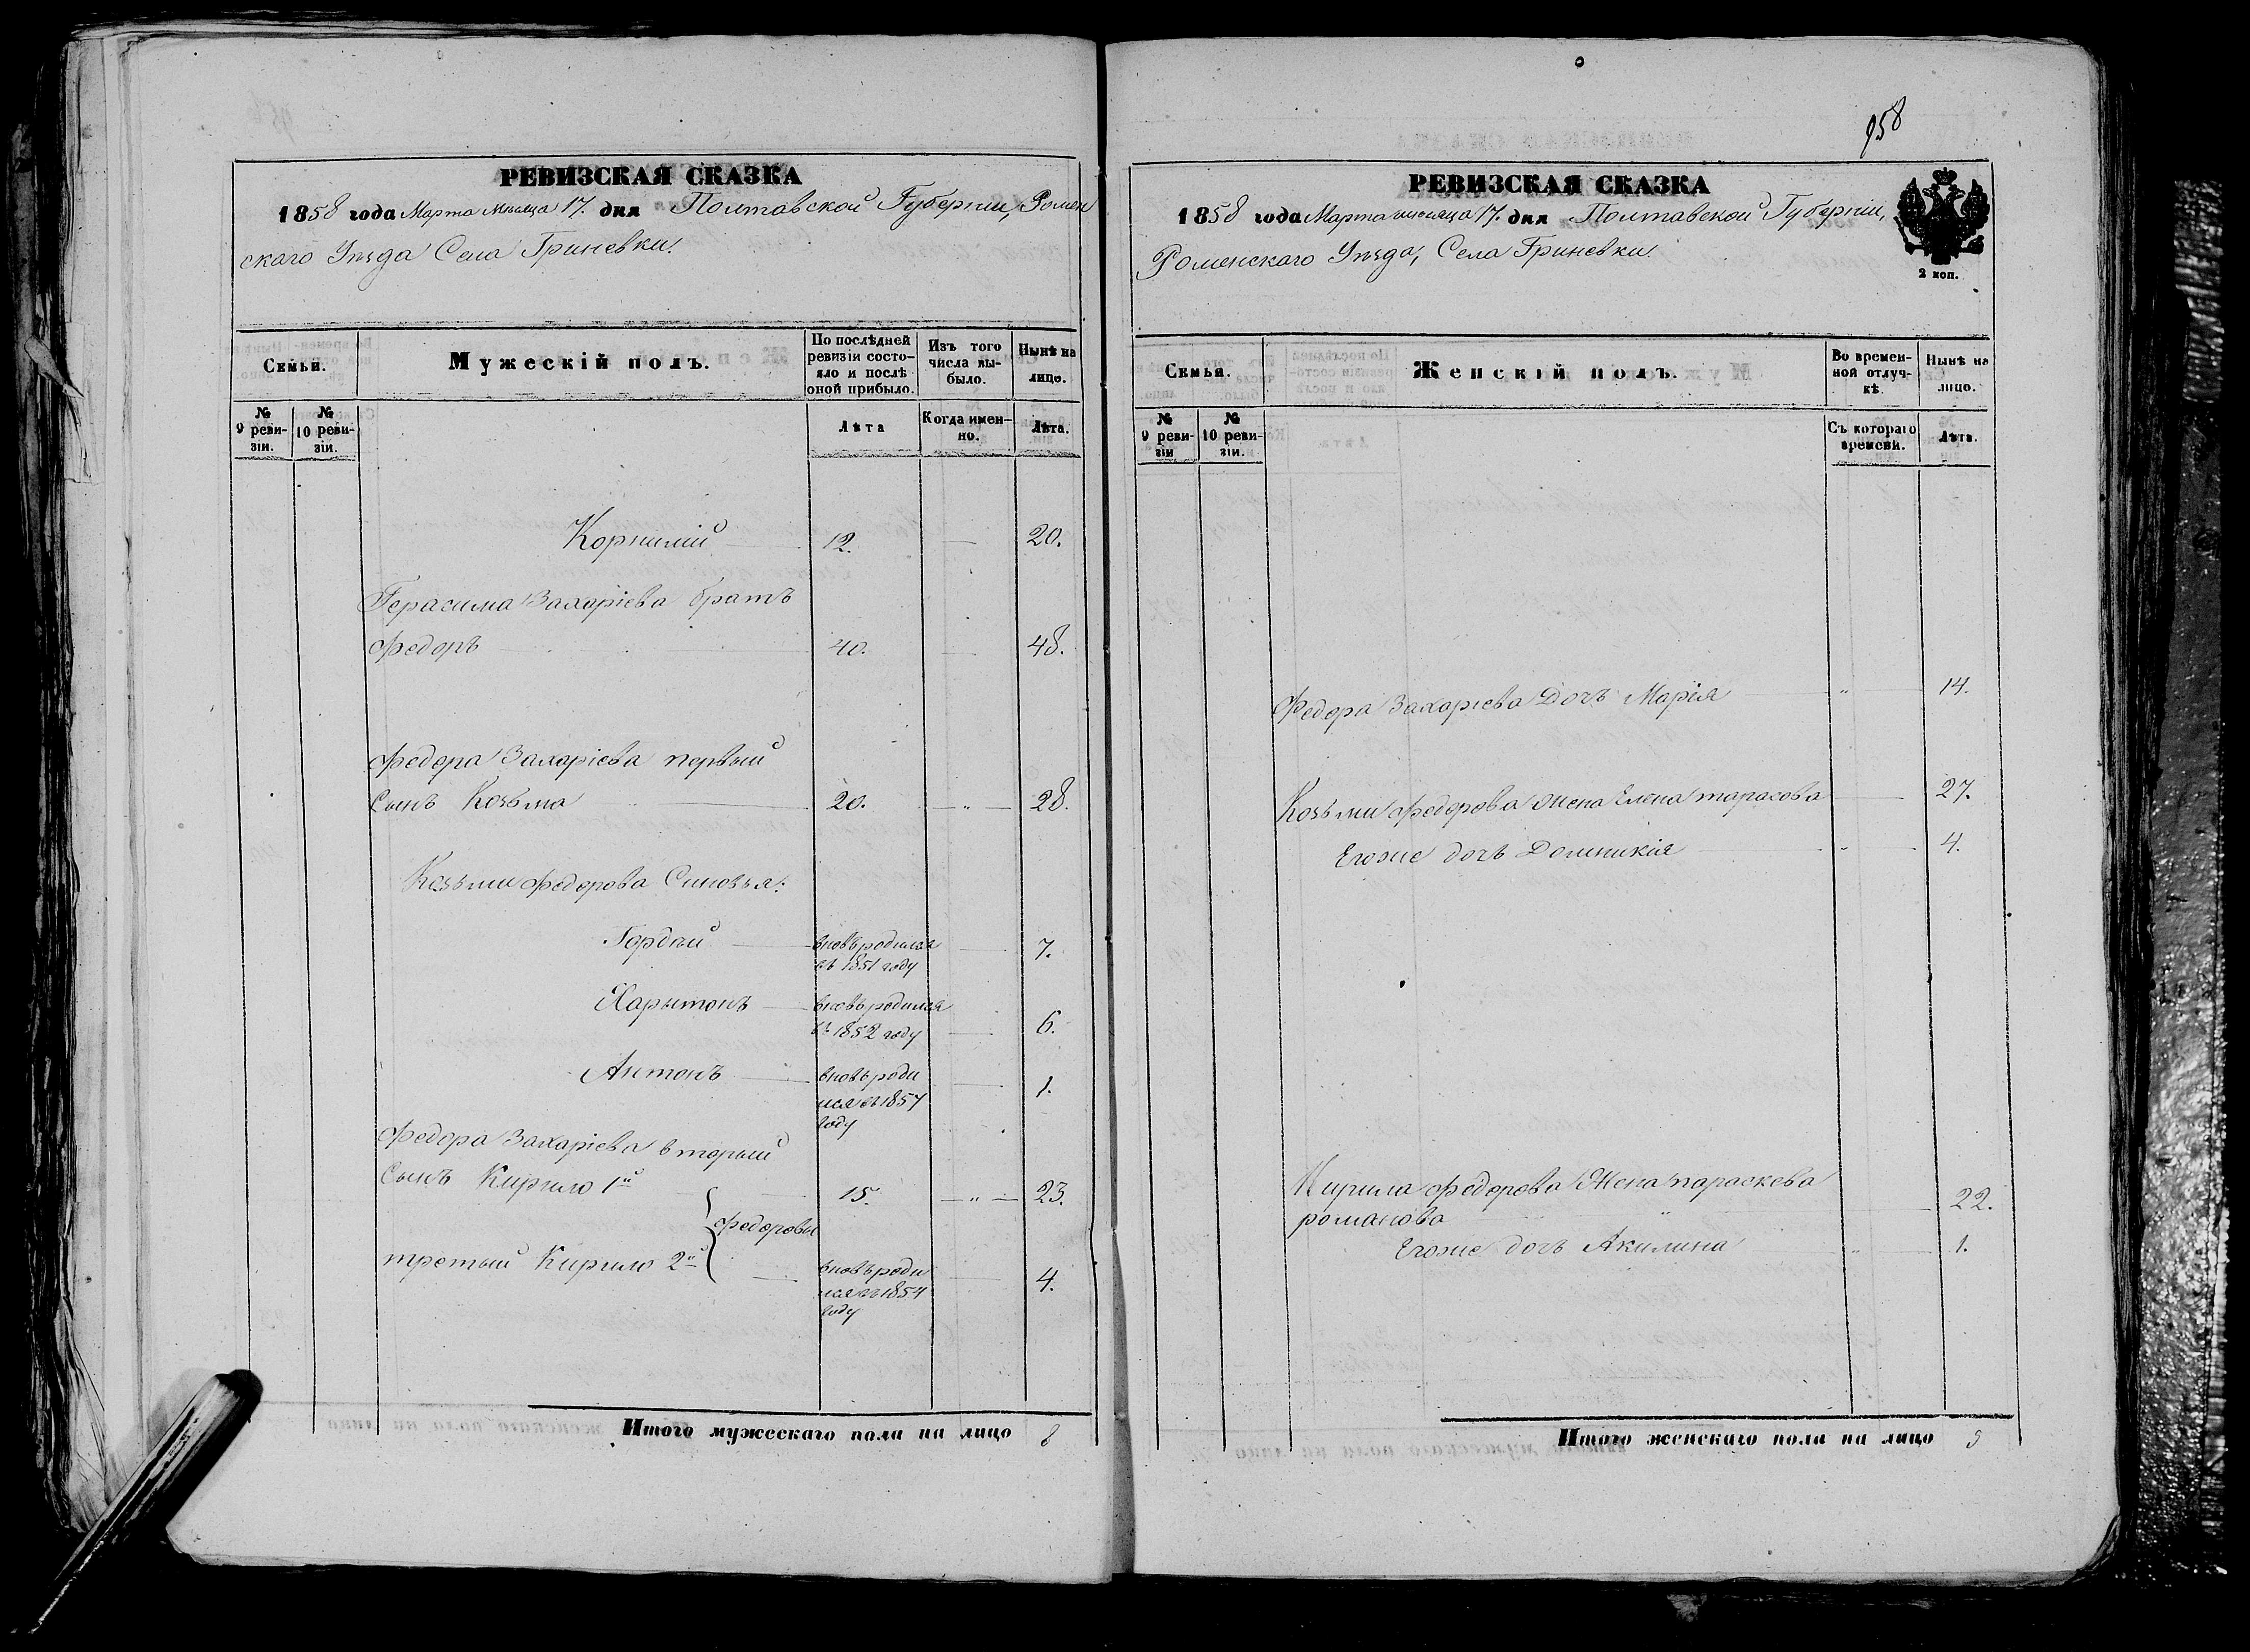 РЕВИЗСКАЯ СКАЗКА
1858 года Марта Мѣсяца 17. дня Полтавской Губерніи, Ромен
скаго Уѣзда Села Гриневки.
Семьи.
Мужескій полъ.
По послѣдней ревизіи состояло и послѣ оной прибыло.
Изъ того числа выбыло.
Нынѣ на лицо.
№ 9 ревизіи.
№ 10 ревизіи.
Лѣта
Когда именно.
Лѣта.
Корнилій 12. 20.
Герасима Захаріева братъ
Федоръ 40. 48.
Федора Захаріева первый
Сынъ Козьма 20. — " — 28.
Козьми Федорова Сыновья:
Гордѣй вновьродился 7.
въ 1851 году
Харытонъ вновьродился
въ 1852 году 6.
Антонъ вновьроди 1.
лся въ 1857
году
Федора Захаріева вторый
Сынъ Кирило 1й 15. — " — 23.
Федоровы
третый Кирило 2й вновьроди 4.
лся въ 1854
году
Итого мужескаго пола на лицо 8
958
РЕВИЗСКАЯ СКАЗКА
1858 года Марта мѣсяца 17. дня Полтавской Губерніи,
Роменскаго Уѣзда, Села Гриневки.
2 коп.
Семьи.
Женскій полъ.
Во временной отлучкѣ.
Нынѣ на лицо.
№ 9 ревизіи
№ 10 ревизіи.
Съ котораго времени.
Лѣта.
Федора Захаріева Дочь Марія " 14.
Козьми Федорова жена Елена тарасова 27.
Егоже дочь Домникія " 4.
Кирила Федорова Жена параскева
романова " 22.
Егоже дочь Акилина " 1.
Итого женскаго пола на лицо 5